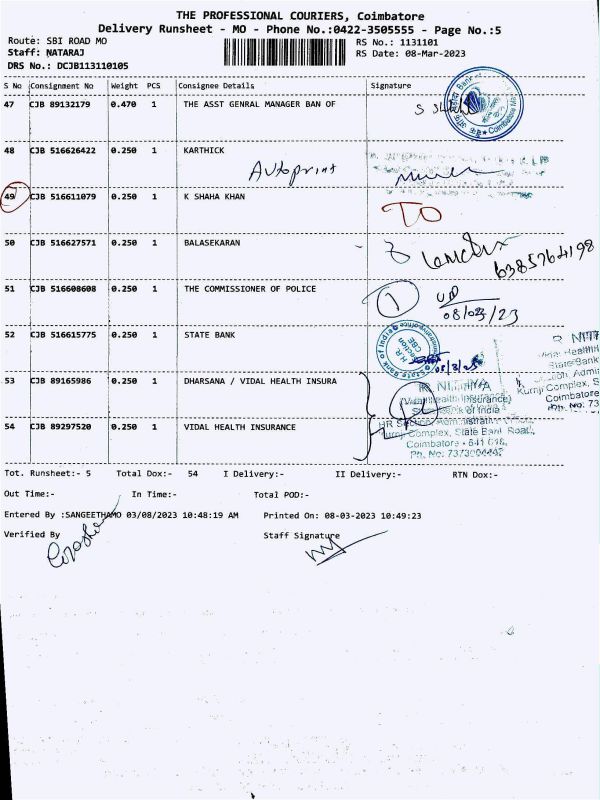 THE PROFESSIONAL COURIERS, Coimbatore
Delivery Runsheet - MO - Phone No.:0422-3505555 - Page No.:5
Route: SBI ROAD MO
RS No.: 1131101
Staff: NATARAJ
RS Date: 08-Mar-2023
DRS No.: DCJB113110105
S No Consignment No Weight PCS Consignee Details Signature
47 CJB 89132179 0.470 1 THE ASST GENRAL MANAGER BAN OF
48 CJB 516626422 0.250 1 KARTHICK
Autoprint
49 CJB 516611079 0.250 1 K SHAHA KHAN
TO
50 CJB 516627571 0.250 1 BALASEKARAN
6385764198
51 CJB 516608608 0.250 1 THE COMMISSIONER OF POLICE
1
08/03/23
52 CJB 516615775 0.250 1 STATE BANK
State Bank of India
H.R. Section
CBE
53 CJB 89165986 0.250 1 DHARSANA / VIDAL HEALTH INSURA
(Vidal Health Insurance)
State Bank of India
54 CJB 89297520 0.250 1 VIDAL HEALTH INSURANCE
HR Section Administrative Office,
Kurnji Complex, State Bank Road,
Coimbatore - 641 018.
Tot. Runsheet:- 5 Total Dox:- 54 I Delivery:- II Delivery:- RTN Dox:-
Out Time:- In Time:- Total POD:-
Entered By :SANGEETHAMO 03/08/2023 10:48:19 AM Printed On: 08-03-2023 10:49:23
Verified By Staff Signature